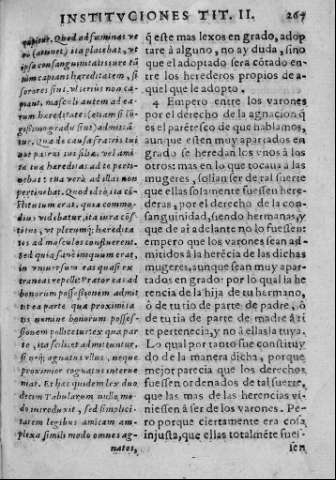 INSTITVCIONES TIT. II. 267
capitur. Quod ad fœminas ve
rò (attinet) ita placebat, vt
ipsa consanguinitatis iure tã
tùm capiant hæreditatem, si
sorores sint, vlterius non ca-
piant, masculi autem ad ea-
rum hæreditates (etiam si lõ
gissimo gradu sint) admittã
tur. Qua de causa fratris tui
aut patrui tui filiæ, vel amitæ
tuæ hæreditas ad te pertine-
bat: tua verò ad illas non
pertinebat. Quod ideò, ita cõ
stitutum erat, quia commo-
dius videbatur, ita iura cõs-
titui, vt plerunq; heredita
tes ad masculos confluerent.
Sed quia sanè iniquum erat,
in vniuersum eas quasi ex
traneas repelli: Prætor eas ad
bonorum possessionem admit
tit ea parte qua proximita
tis nomine bonorum posses-
sionem pollicetur: ex qua par
te, ita scilicet admittuntur,
si neq; agnatus vllus, neque
proximior cognatus interue
niat. Et hæc quidem lex duo
decim Tabularum nullo mo-
do introduxit, sed simplici-
tatem legibus amicam am-
plexa simili modo omnes ag-
natos,
q̃ este mas lexos en grado, adop
tare à alguno, no ay duda, sino
que el adoptado sera cõtado en-
tre los herederos propios de a-
quel que le adopto.
4 Empero entre los varones
por el derecho de la agnacion q̃
es el parẽtesco de que hablamos,
aunque esten muy apartados en
grado se heredan los vnos à los
otros: mas en lo que tocaua à las
mugeres, solian ser de tal suerte
que ellas solamente fuessen here-
deras, por el derecho de la con-
sanguinidad, siendo hermanas, y
que de ai adelante no lo fuessen:
empero que los varones sean ad-
mitidos à la herẽcia de las dichas
mugeres, aunque sean muy apar-
tados en grado: por lo qual la he
rencia de la hija de tu hermano,
ò de tu tio de parte de padre, ò
de tu tia de parte de madre à ti
te pertenecia, y no à ellas la tuya.
Lo qual por tanto fue constituy
do de la manera dicha, porque
mejor parecia que los derechos
fuessen ordenados de tal suerte,
que las mas de las herencias vi-
niessen à ser de los varones. Pe-
ro porque ciertamente era cosa
injusta, que ellas totalmẽte fues-
sen